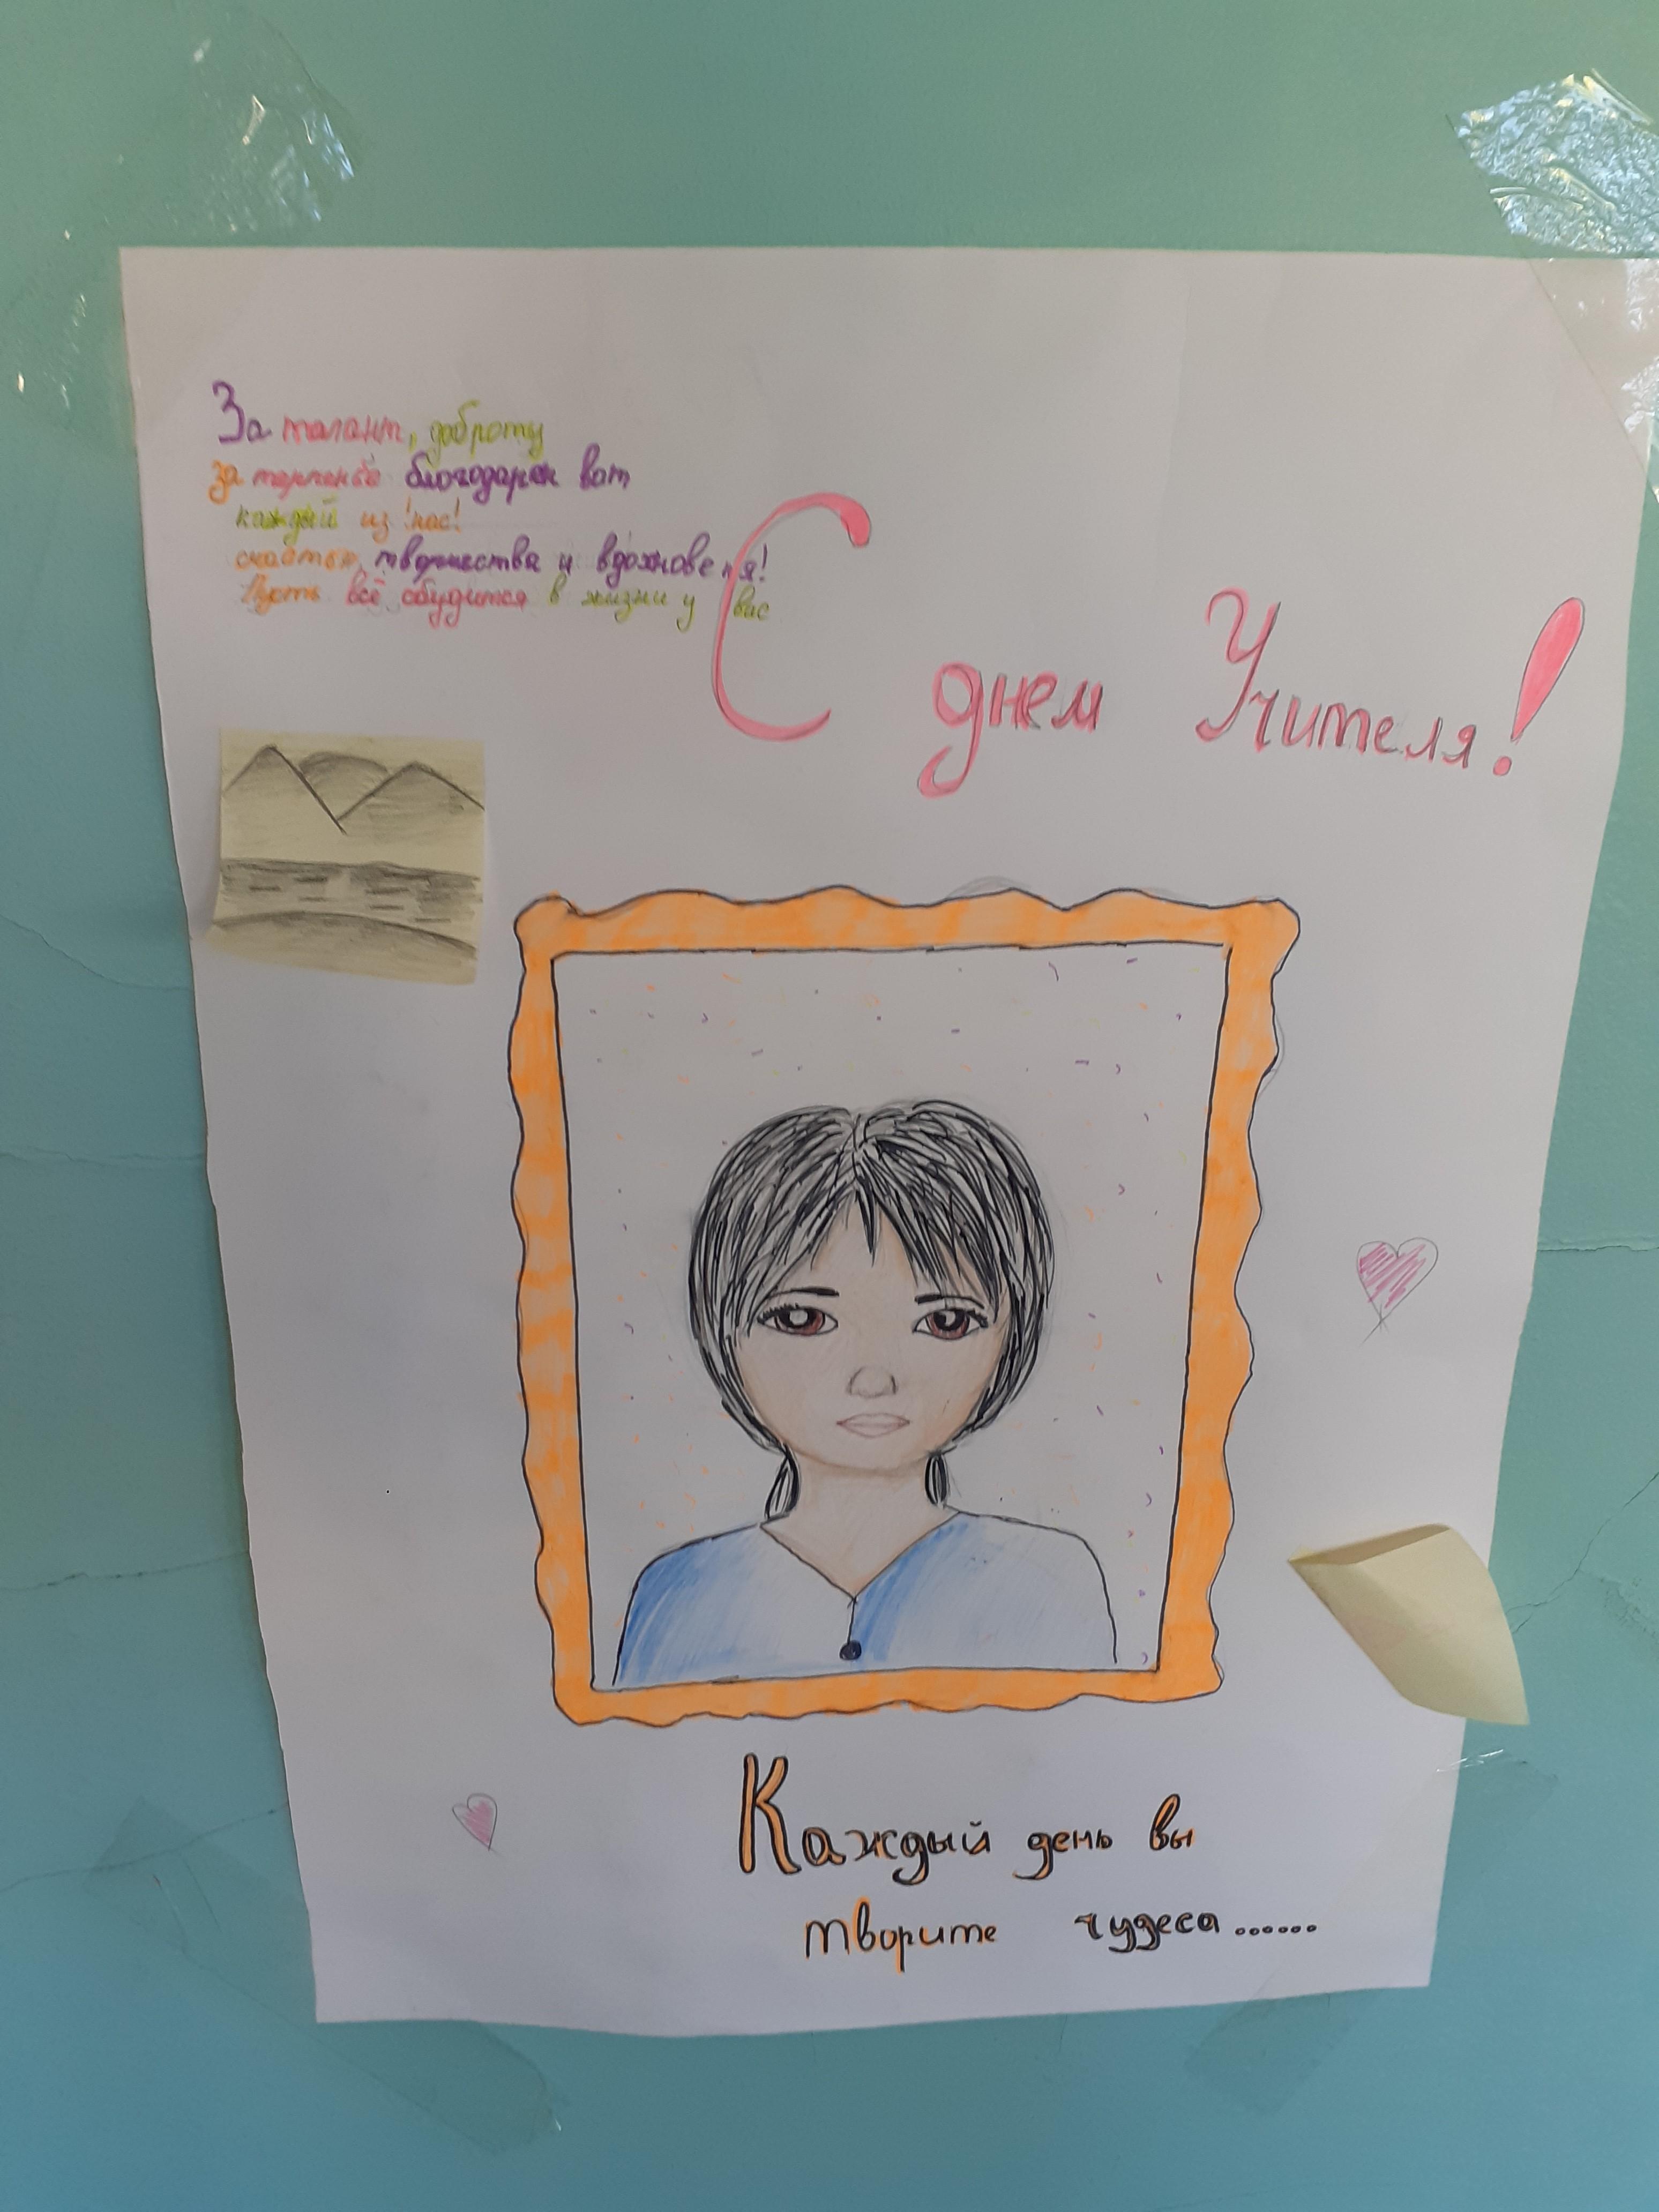 За талант, доброту
за терпенье благодарен вам
каждый из нас!
счастья, творчества и вдохновения!
Пусть всё сбудится в жизни у вас
С днем Учителя!
Каждый день вы
творите чудеса......